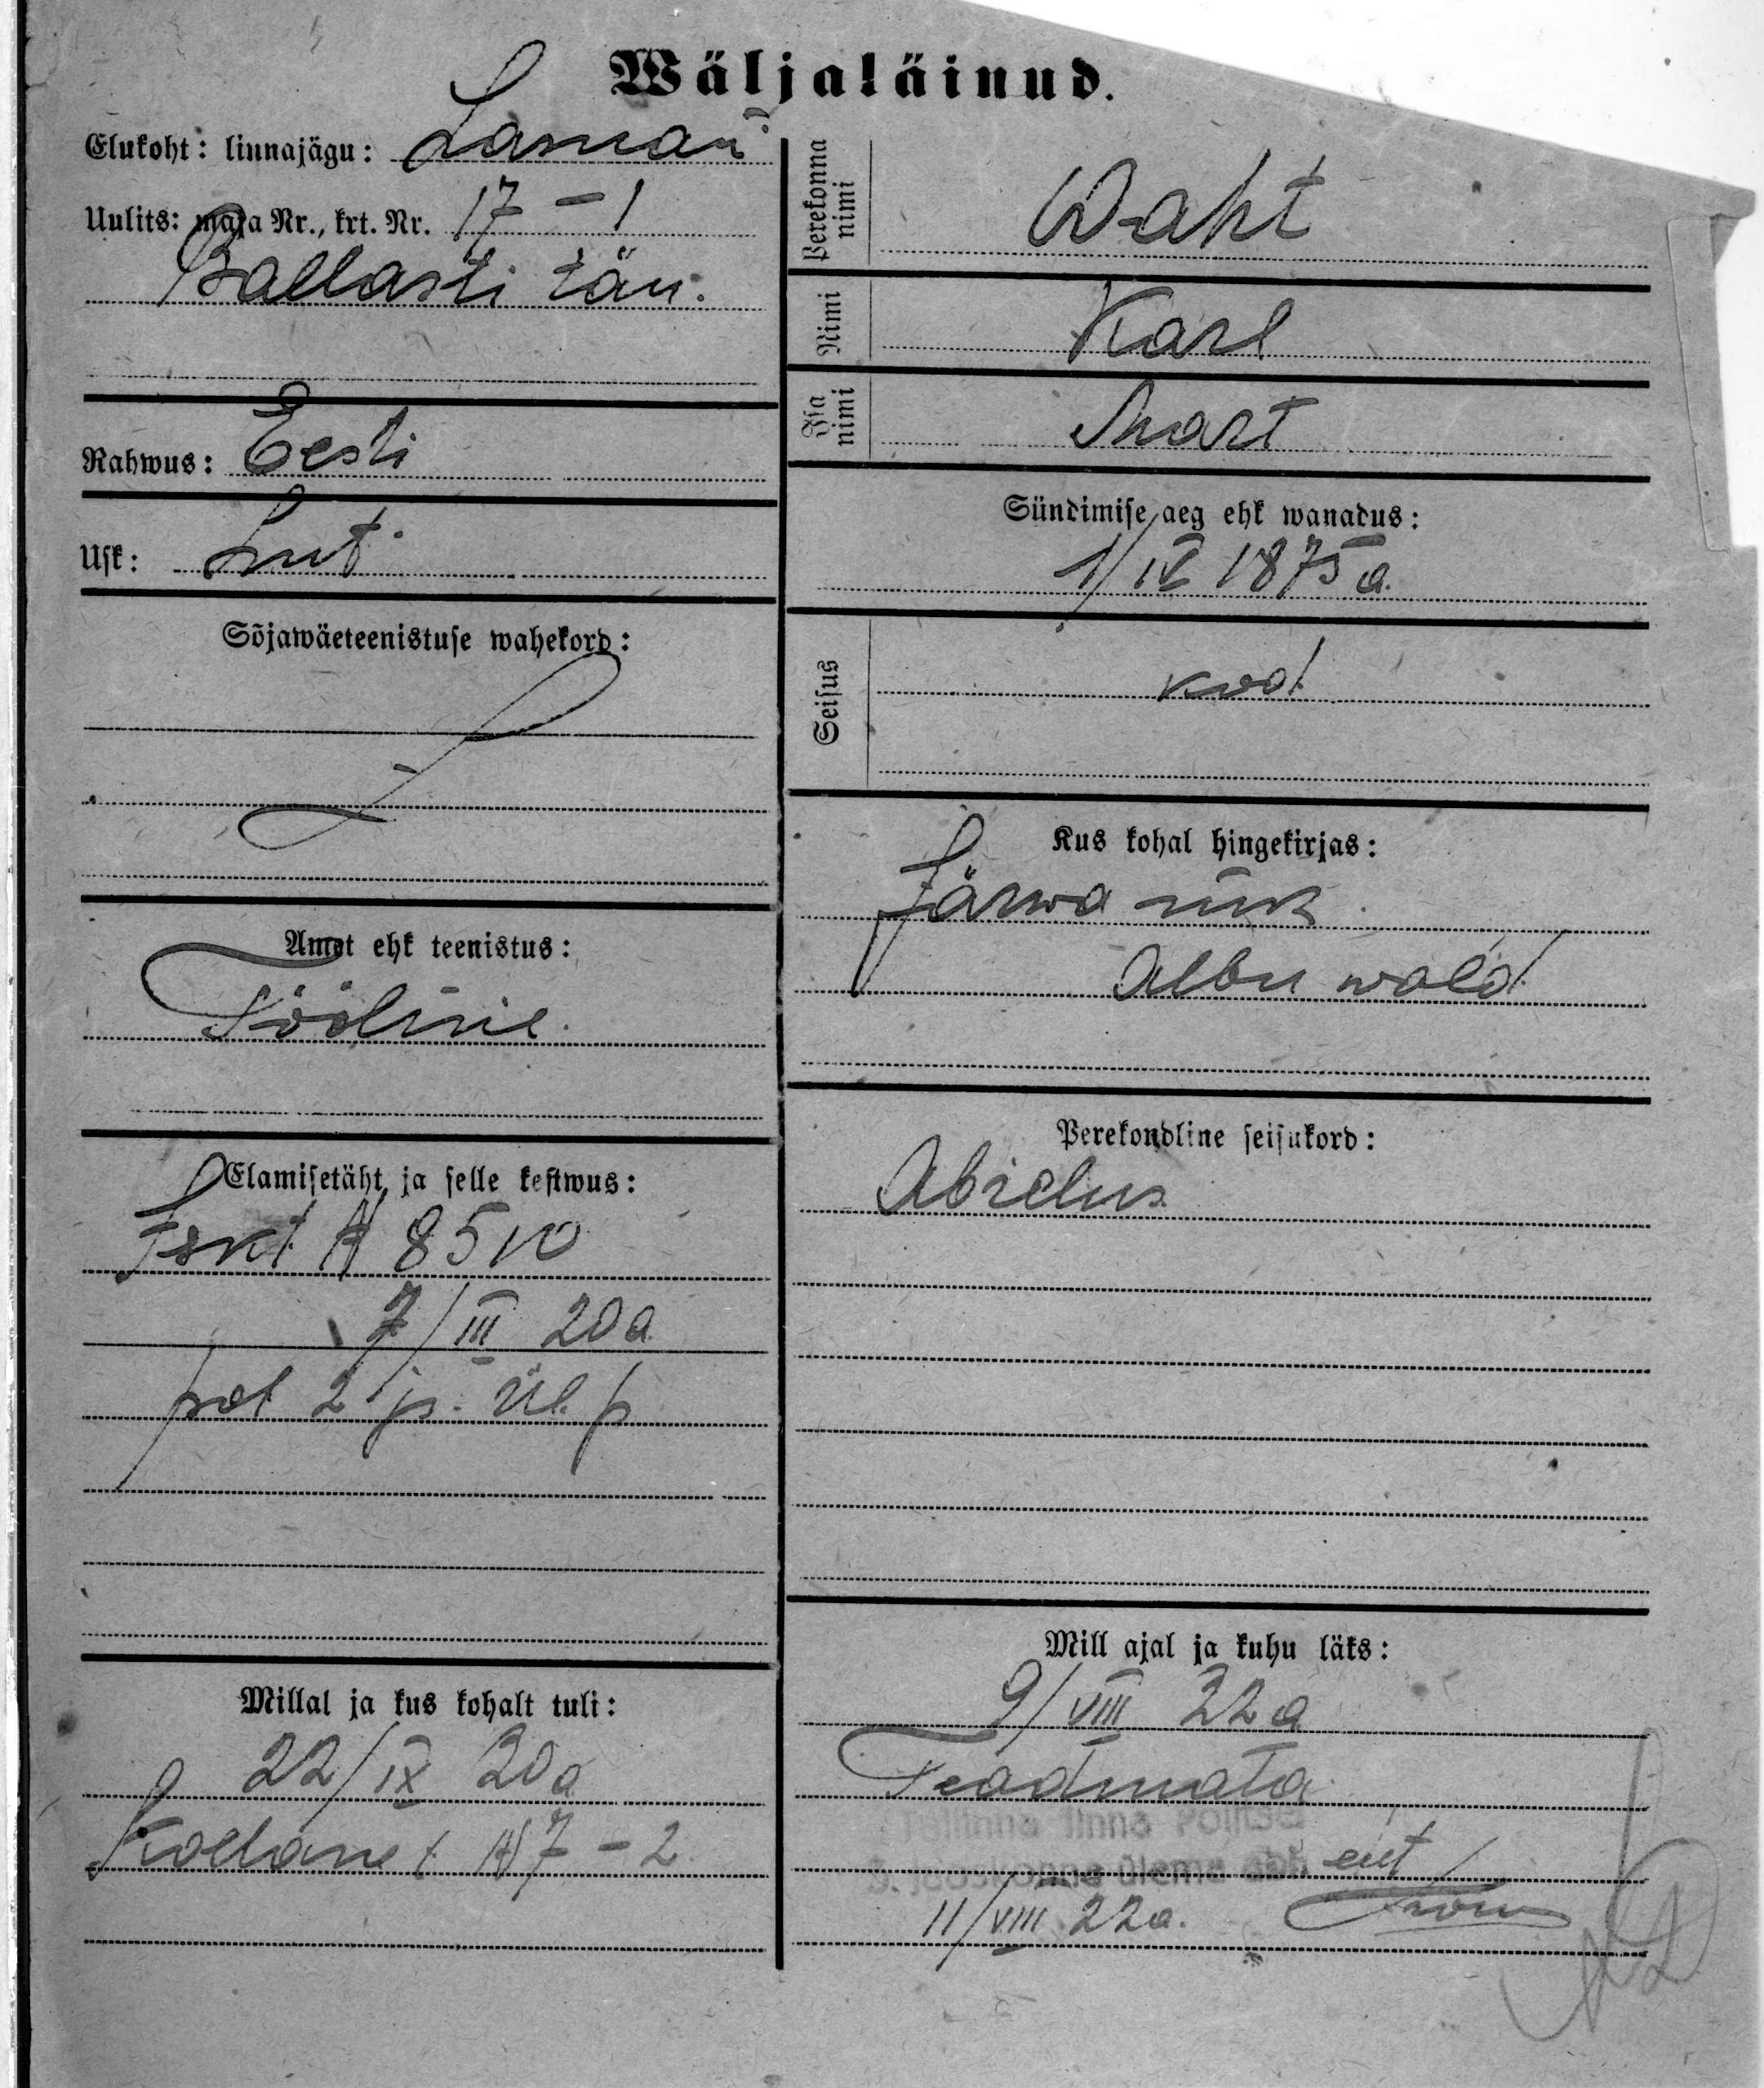 Wäljaläinud.
Elukoht: linnajägu: Lasnam
Uulits: maja Nr., krt. Nr. 17 – 1
Ballasti tän.
Rahwus: Eesti
Usk: Lut.
Sõjawäeteenistuse wahekord:
Amet ehk teenistus:
Tööline.
Elamisetäht ja selle kestwus:
Iskt № 8510
7/III 20 a
pol 2 js. ül. p
Millal ja kus kohalt tuli:
22/IX 20 a
Kollane t № 7 – 2
Perekonna nimi
Waht
Nimi
Karl
Isa nimi
Mart
Sündimise aeg ehk wanadus:
1/IV 1875 a.
Seisus
kod.
Kus kohal hingekirjas:
Järwa mk.
Albu wald
Perekondline seisukord:
Abielus
Mill ajal ja kuhu läks:
9/VIII 22 a
Teadmata
Tallinna linna Politsei
5. jaoskonna ülema abi
11/VIII 22 a.